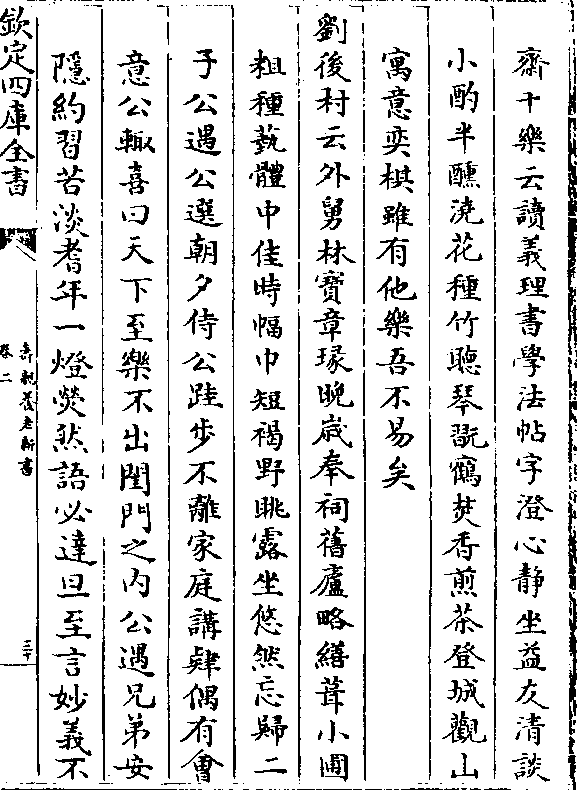 齋十樂云讀義理書學法帖字澄心静坐益友清談
小酌半醺澆花種竹聽琴翫鶴焚香煎茶登城觀山
寓意奕棋雖有他樂吾不易矣
劉後村云外舅林寶章瑑晚歲奉祠舊廬略繕葺小圃
粗種蓺體中佳時幅巾短褐野眺露坐悠然忘歸二
子公遇公選朝夕侍公跬步不離家庭講肄偶有會
意公輙喜曰天下至樂不出閨門之内公遇兄弟安
隱約習苦淡耆年一燈熒然語必達旦至言妙義不
欽定四庫全書
壽親養老新書
卷二
三十